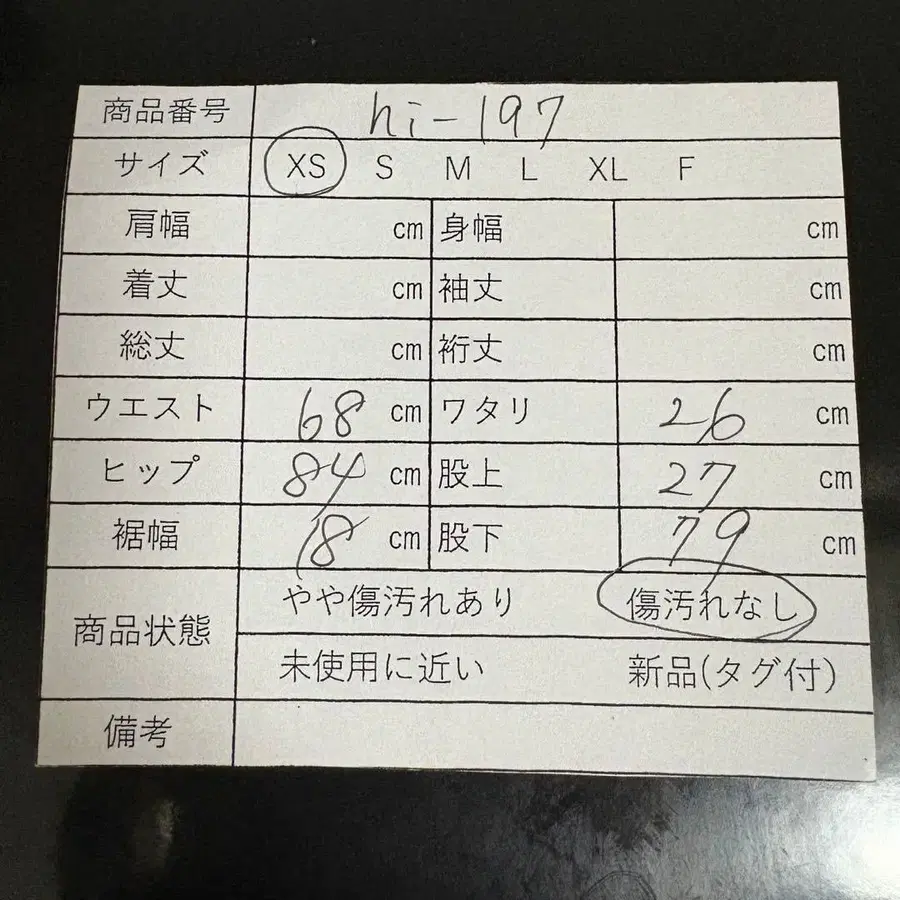 商品番号 hi-197
サイズ XS S M L XL F
肩幅 cm 身幅 cm
着丈 cm 袖丈 cm
総丈 cm 裄丈 cm
ウエスト 68 cm ワタリ 26 cm
ヒップ 84 cm 股上 27 cm
裾幅 18 cm 股下 79 cm
商品状態 やや傷汚れあり 傷汚れなし
未使用に近い 新品(タグ付)
備考